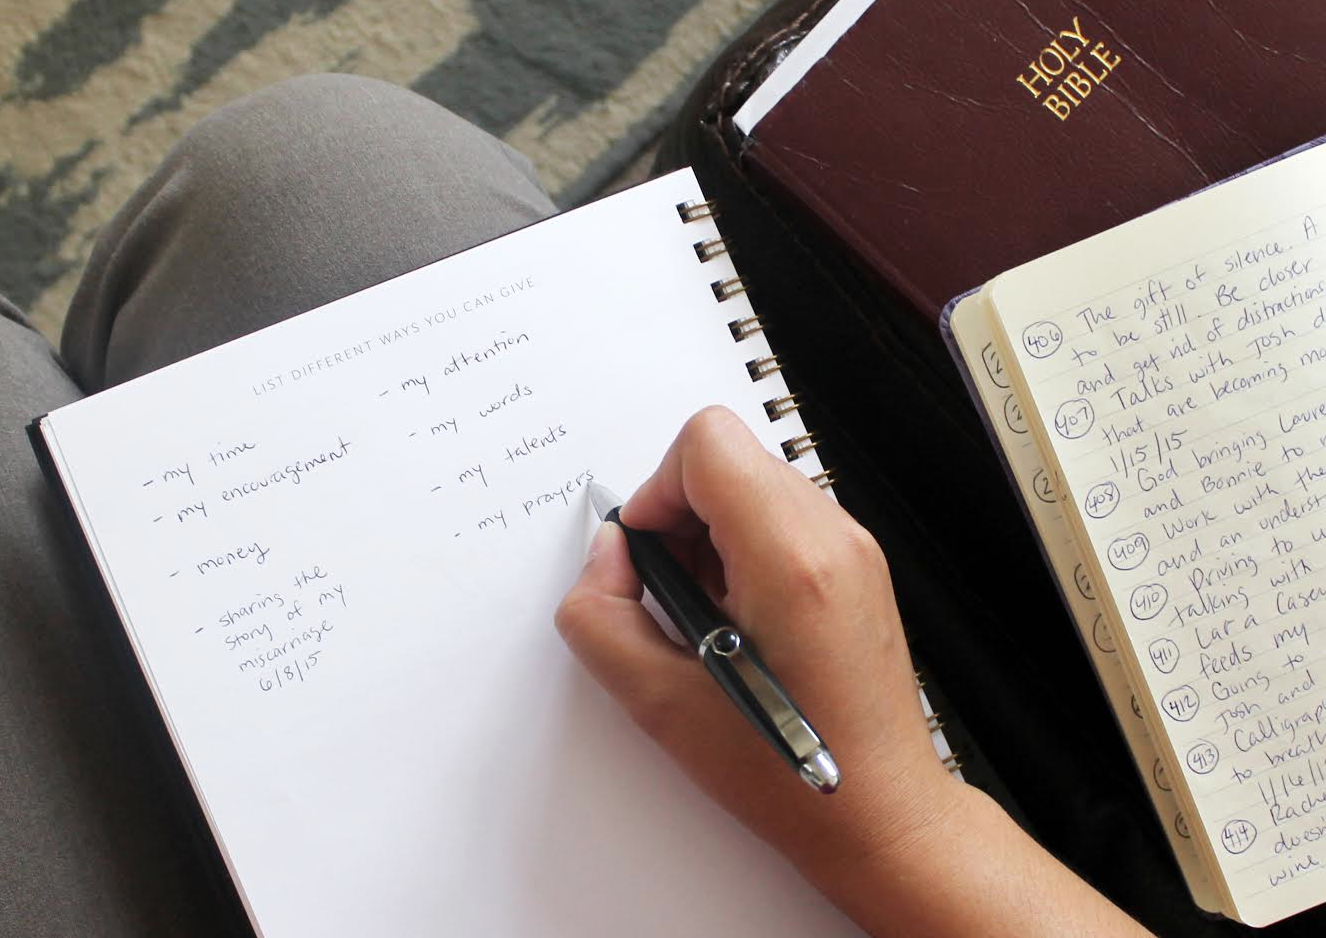 HOLY
BIBLE
LIST DIFFERENT WAYS YOU CAN GIVE
- my time
- my encouragement
- money
- sharing the
story of my
miscarriage
6/8/15
- my attention
- my words
- my talents
- my prayers
406 The gift of silence. A
to be still. Be closer
and get rid of distractions
407 Talks with Josh
that are becoming
1/15/15
408 God bringing
and Bonnie to
409 Work with the
and an
410 Driving to
talking with
411 Lara Casey
feeds my
412 Going to
Josh and
413
to
414
wine